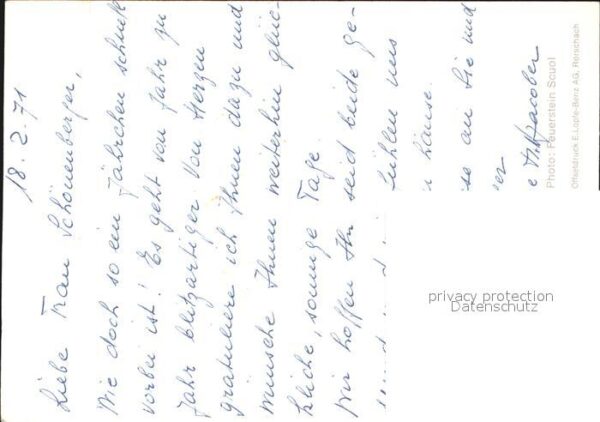 18. 2. 71
Liebe Frau Schönenberger,
Wie doch so ein Jährchen schnell
vorbei ist! Es geht von Jahr zu
Jahr blitzartiger. Von Herzen
gratuliere ich Ihnen dazu und
wünsche Ihnen weiterhin glück-
kliche, sonnige Tage.
Wir hoffen Ihr seid beide ge-
fühlen uns
hause.
se an Sie und
Photo: Feuerstein Scuol
Offsetdruck E. Lopfe-Benz AG, Rorschach
privacy protection
Datenschutz